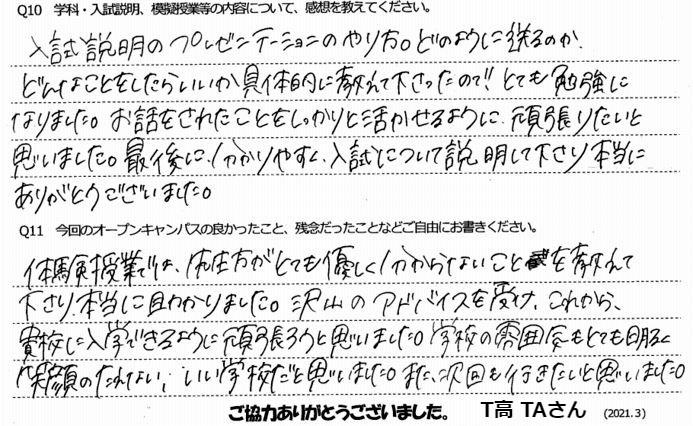 Q10　学科・入試説明、模擬授業等の内容について、感想を教えてください。
入試説明のプレゼンテーションのやり方。どのように送るのか、
どんなことをしたらいいか具体的に教えて下さったので!とても勉強に
なりました。お話をされたことをしっかりと活かせるように、頑張りたいと
思いました。最後に、分かりやすく、入試について説明して下さり本当に
ありがとうございました。
Q11　今回のオープンキャンパスの良かったこと、残念だったことなどご自由にお書きください。
体験授業では、先生方がとても優しく分からないことを教えて
下さり本当に助かりました。沢山のアドバイスを受け、これから、
貴校に入学できるように頑張ろうと思いました。学校の雰囲気もとても明るく
笑顔のたえない、いい学校だと思いました。また、次回も行きたいと思いました。
ご協力ありがとうございました。　T高 TAさん　(2021.3)